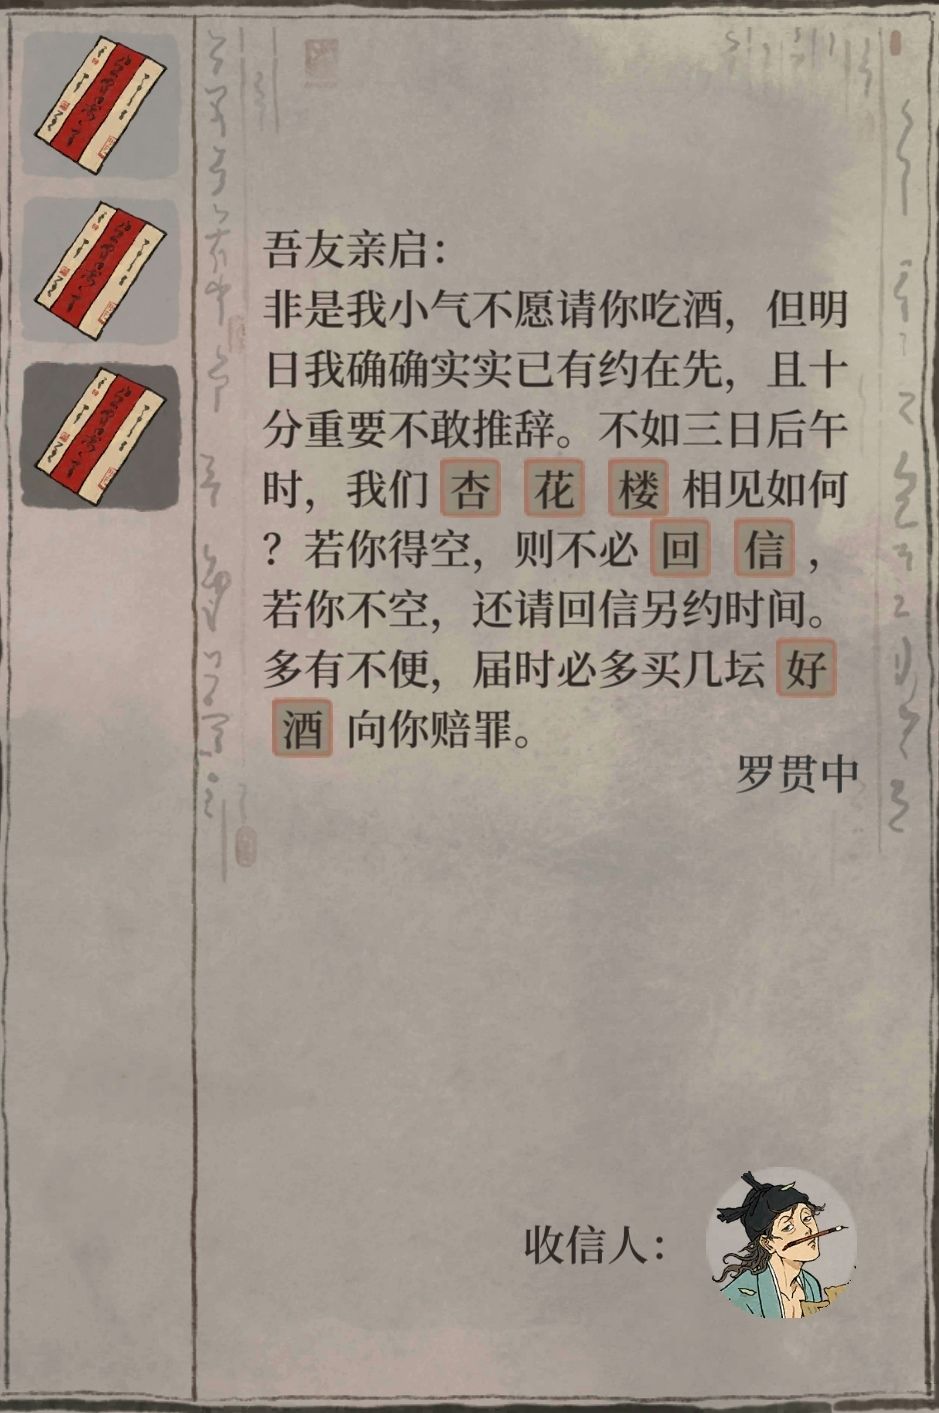 吾友亲启：
非是我小气不愿请你吃酒，但明
日我确确实实已有约在先，且十
分重要不敢推辞。不如三日后午
时，我们杏花楼相见如何
？若你得空，则不必回信，
若你不空，还请回信另约时间。
多有不便，届时必多买几坛好
酒向你赔罪。
罗贯中
收信人：